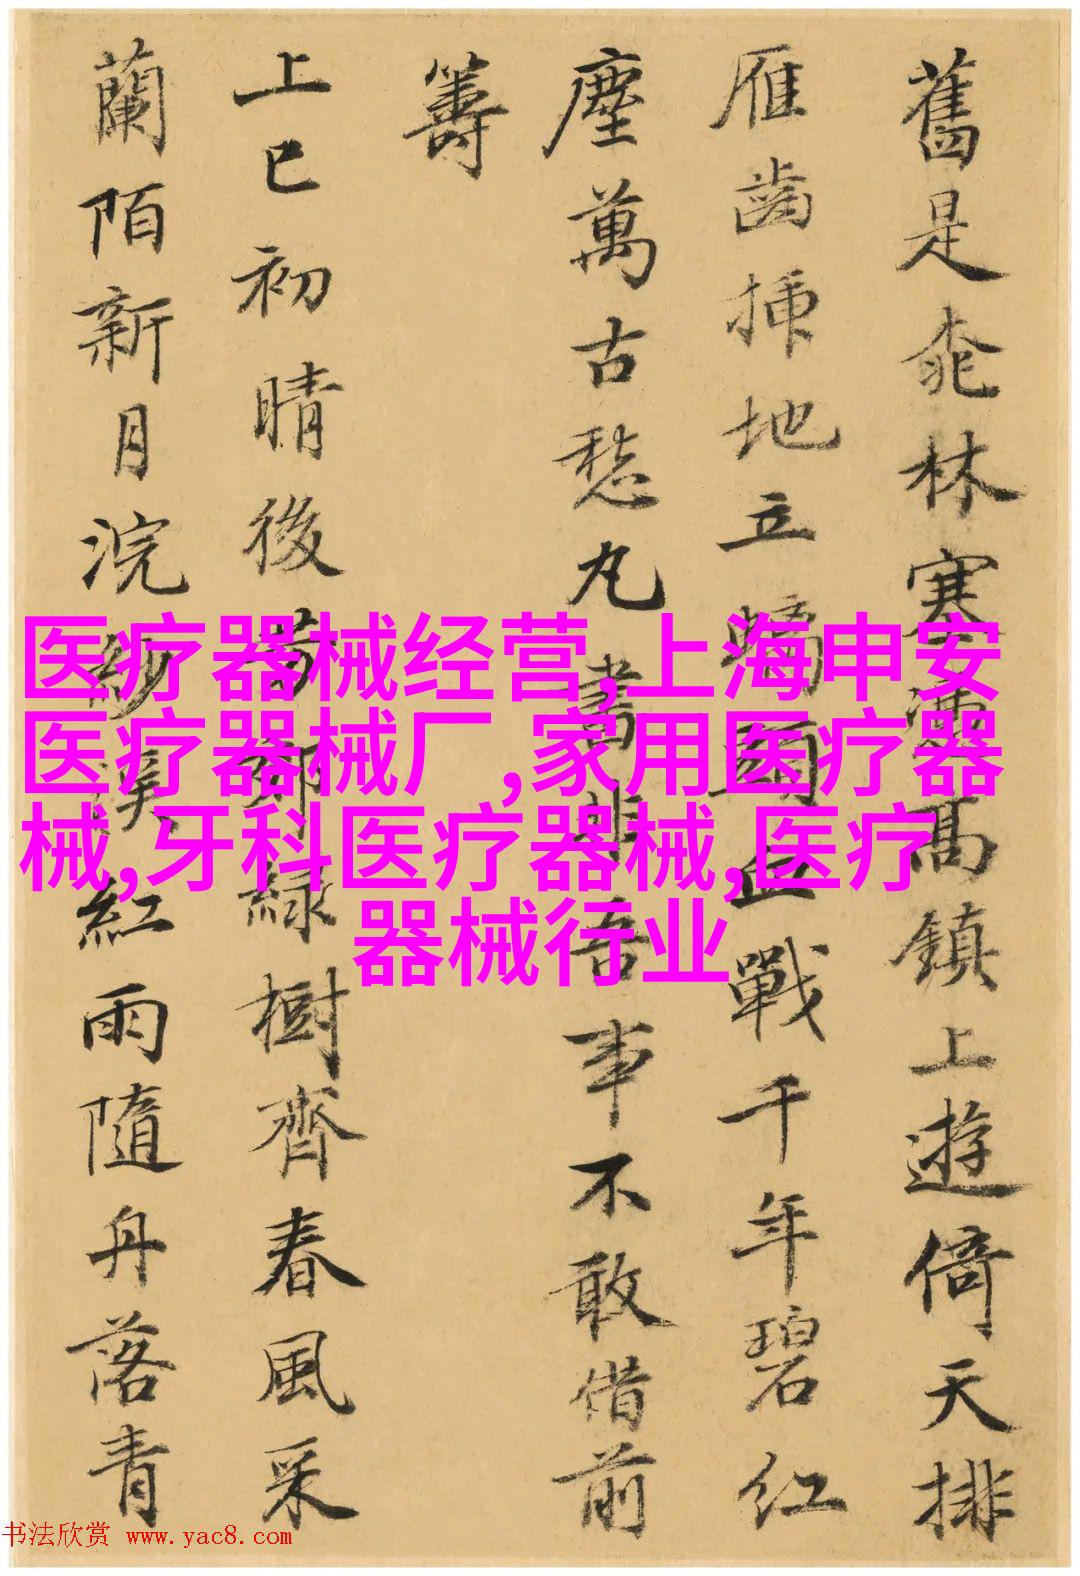 舊是
林塞
髙鎮上遊倚天排
雁齒插地立
血戰千年碧紅
塵萬古愁丸
書非吾事不敢借前
籌
上巳初晴後
綠樹齊春風采
蘭陌新月浣紗溪紅雨隨丹落青
医疗器械经营,上海申安
医疗器械厂,家用医疗器
械,牙科医疗器械,医疗
器械行业
书法欣赏 www.yac8.com